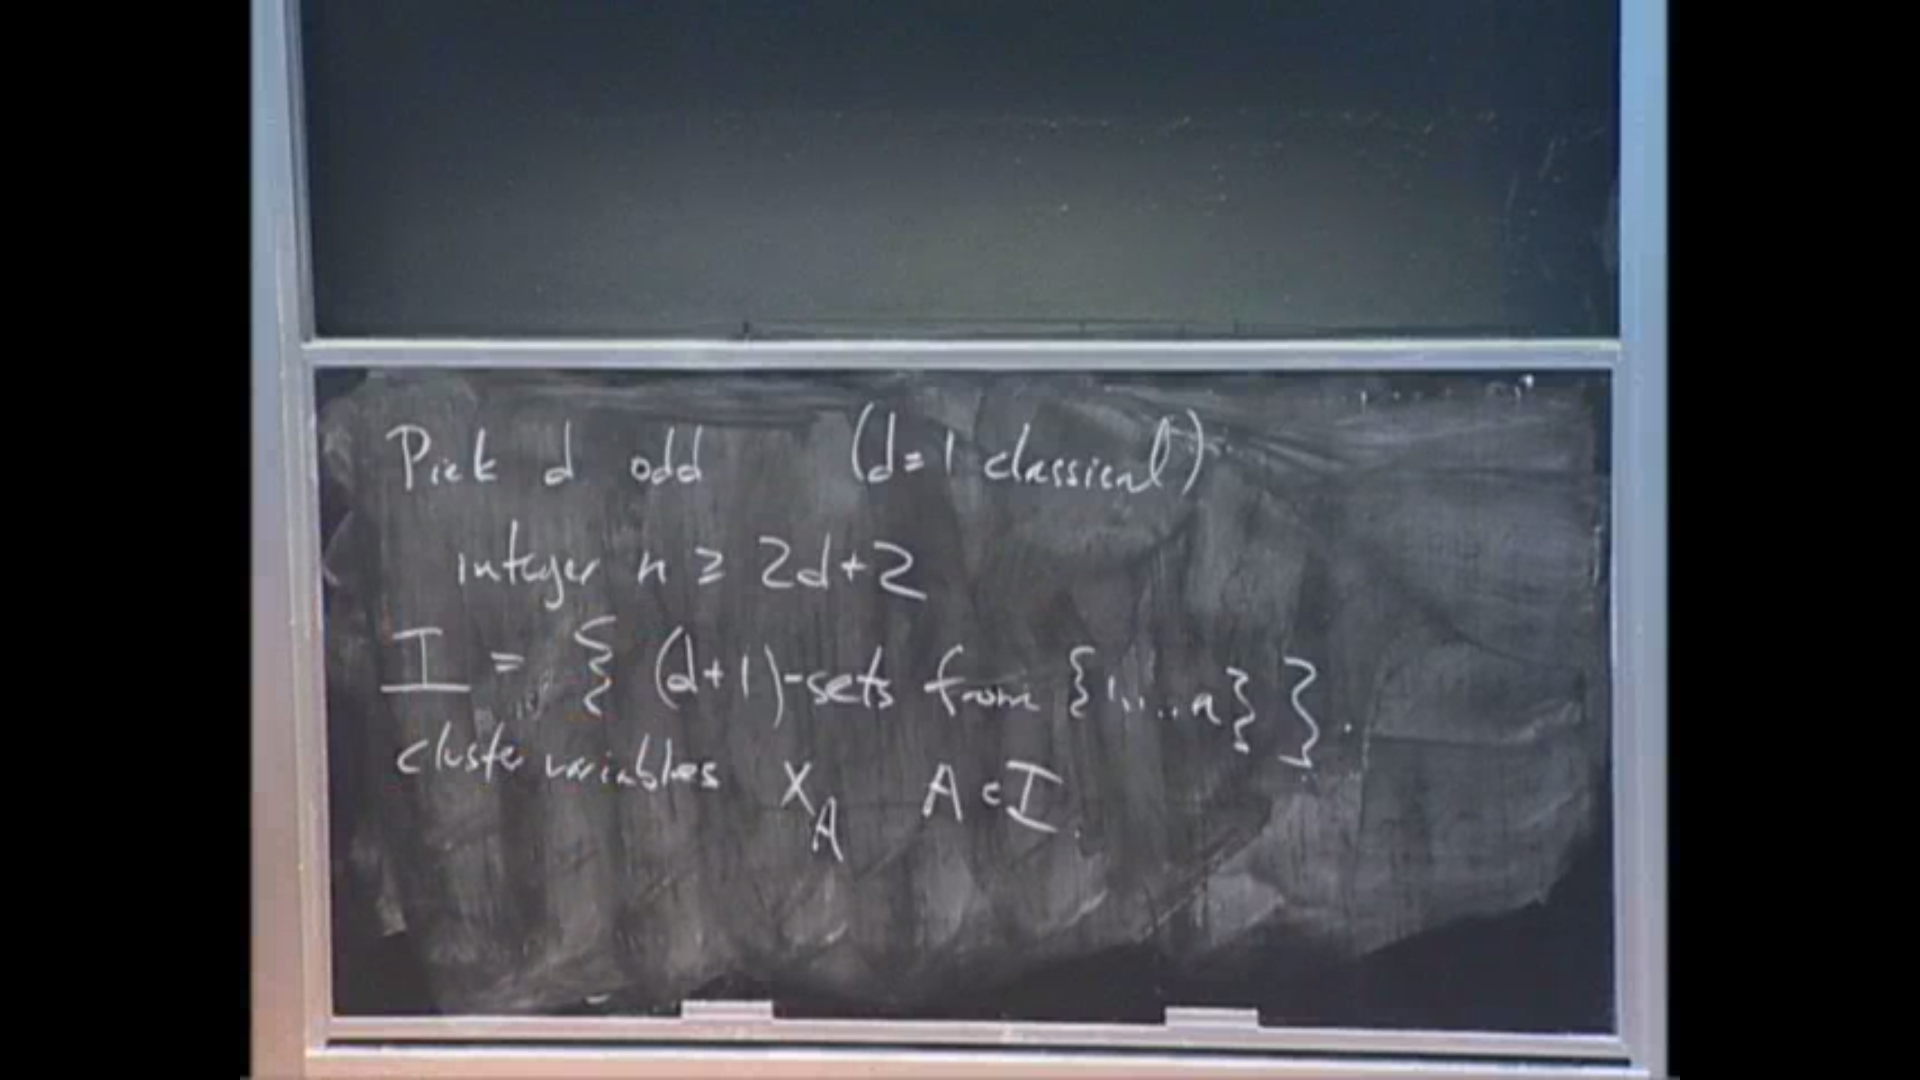 Pick d odd (d=1 classical)
integer n ≥ 2d+2
I = { (d+1)-sets from {1,...,n} }.
cluster variables X_A A ∈ I.